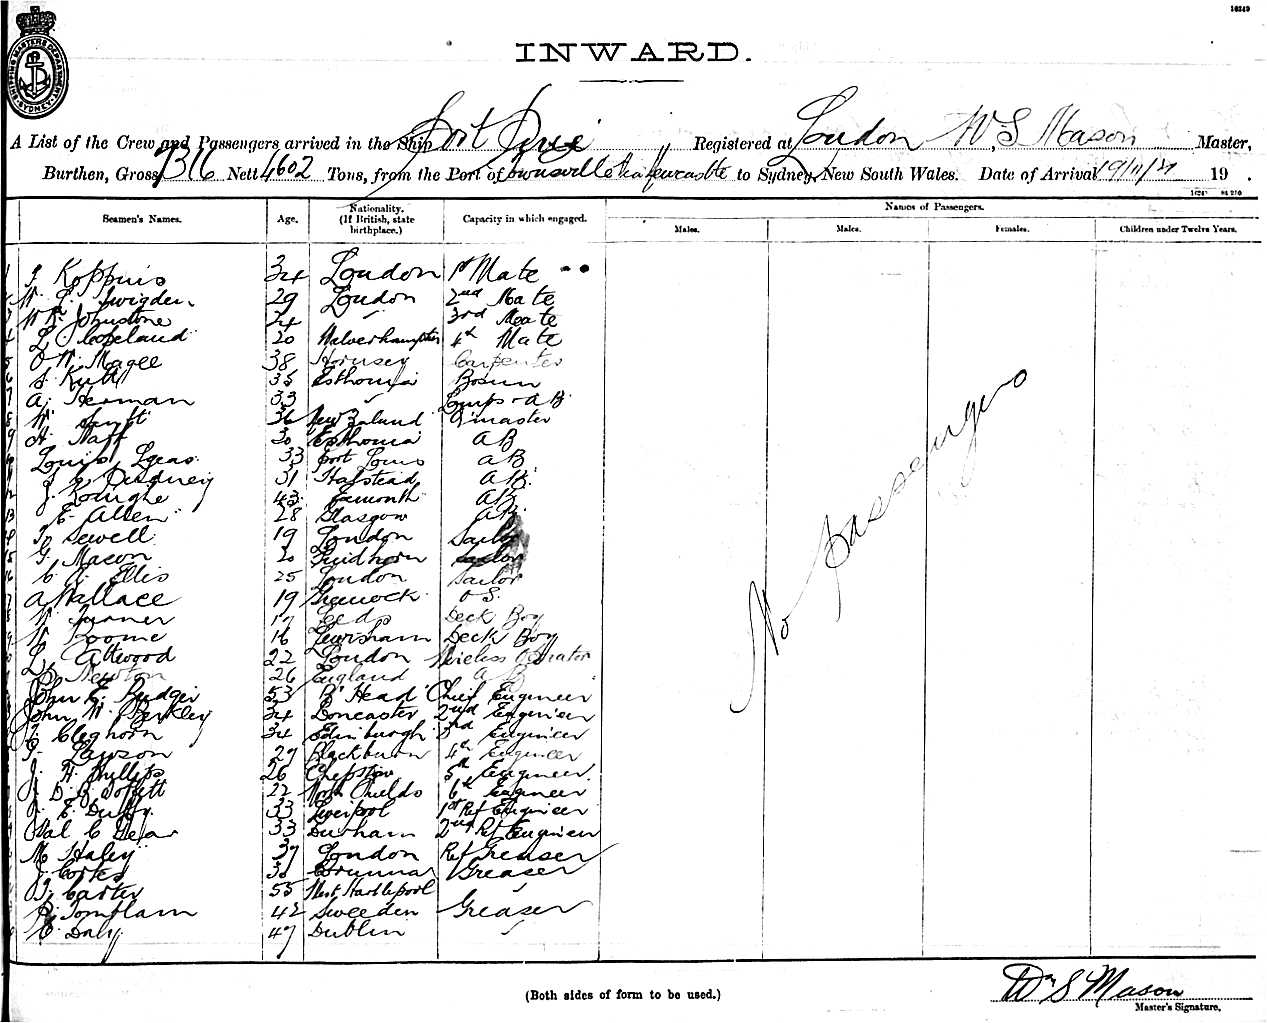 16249
SHIPPING MASTERS DEPARTMENT SYDNEY
INWARD.
A List of the Crew and Passengers arrived in the Ship Port " Registered at London W. S Mason Master,
Burthen, Gross 7316 Nett 4602 Tons, from the Port of Townsville via Newcastle to Sydney, New South Wales. Date of Arrival 19/11/21 19 .
Seamen's Names. Age. Nationality. (If British, state birthplace.) Capacity in which engaged. Names of Passengers.
Males. Males. Females. Children under Twelve Years.
34 London 1st Mate
29 London 2nd Mate
Johnstone 24 " 3rd Mate
L Copeland 20 Wolverhampton 4th Mate
O W. Magee 38 Hornsey Carpenter
35 Esthonia Bosun
A. Herman 33 " Lamps & AB
W Swift 36 New Zealand Q'master
30 Esthonia AB
Louis 33 Port Louis AB
31 Halstead AB
43 AB
E. Allen 28 Glasgow AB
Sewell 19 London Sailor
G. Macon 20 Sailor
C. A. Ellis 25 London Sailor
A Wallace 19 Greenock O S.
W. Turner 17 Leeds Deck Boy
W Roome 16 Lewisham Deck Boy
L. Attwood 22 London Wireless Operator
Newton 26 England AB
John E. Budger 53 B'Head Chief Engineer
John W. Berkley 34 Doncaster 2nd Engineer
J. Cleghorn 34 Edinburgh 3rd Engineer
Lawson 27 Blackburn 4th Engineer
J. H. Phillips 26 Chepstow 5th Engineer
22 North Shields 6th Engineer
J. E. Duffy 33 Liverpool 1st Ref Engineer
Val C Gear 33 Durham 2nd Ref Engineer
M Haley 37 London Ref Greaser
J. Cortes Greaser
Carter 55 West Hartlepool "
42 Sweeden Greaser
C. Daly 47 Dublin "
No Passengers
(Both sides of form to be used.)
Wm S Mason
Master's Signature,